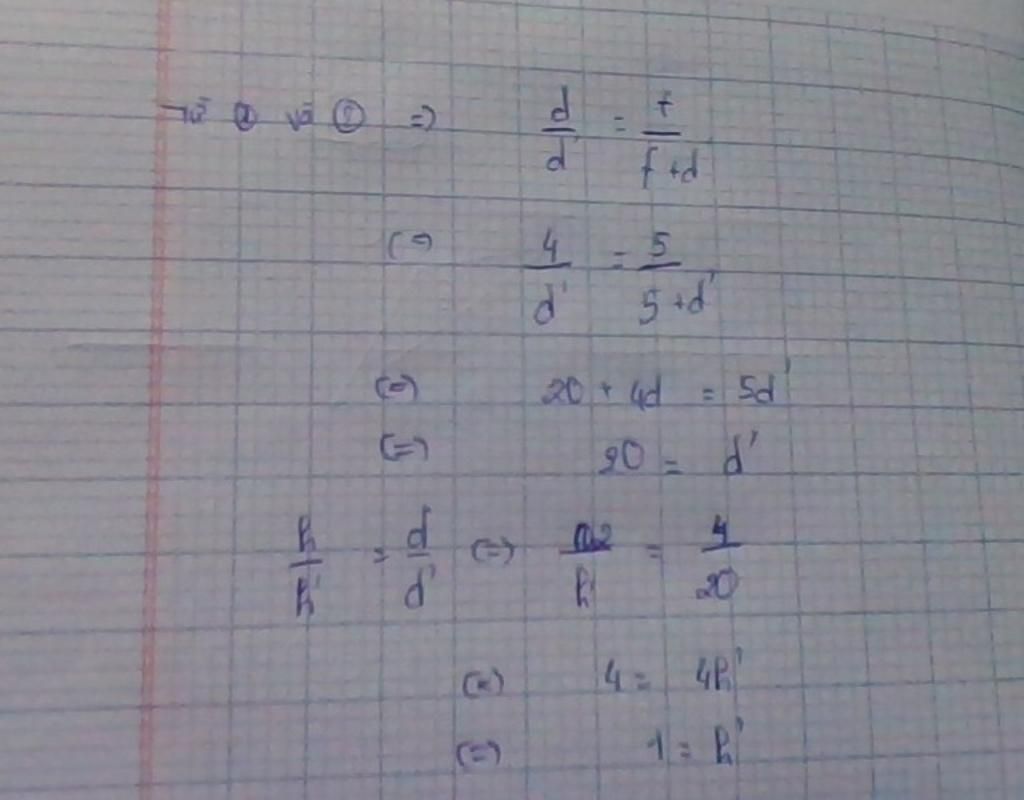 Từ ① và ② => d/d' = f/f+d
(=) 4/d' = 5/5+d'
(=) 20 + 4d = 5d'
(=) 20 = d'
h/h' = d/d' (=) 0.2/h' = 4/20
(=) 4 = 4h'
(=) 1 = h'